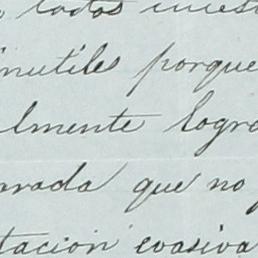 todos
inutiles porque
lmente logra
arada que no
tación evasiva